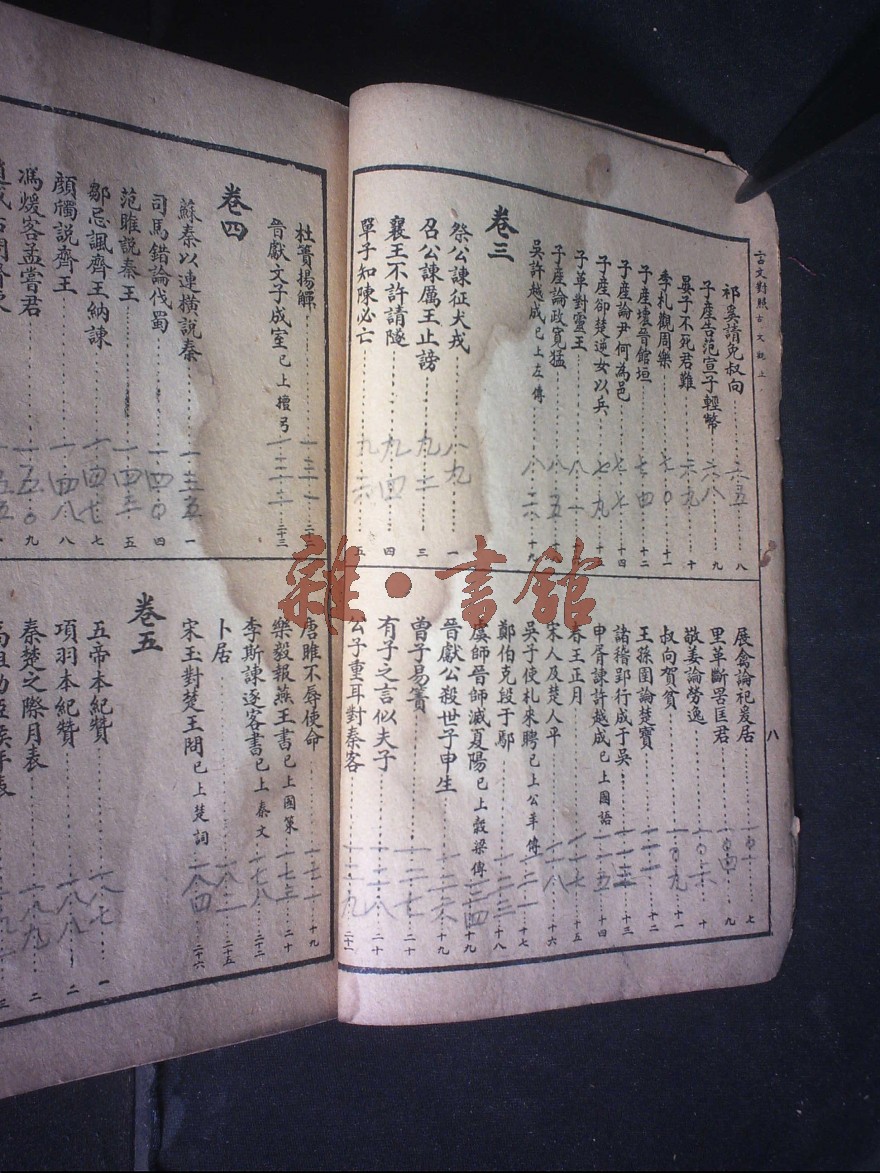 言文對照古文觀止
八
祁奚請免叔向 六五 八
子產告范宣子輕幣 六八 九
晏子不死君難 六九 十
季札觀周樂 七〇 十一
子產壞晉館垣 七四 十二
子產論尹何為邑 七七 十四
子產卻楚逆女以兵 七九
子革對靈王 八一
子產論政寬猛 八五
吳許越成 已上左傳 十九
卷三
祭公諫征犬戎 八九 一
召公諫厲王止謗 九二 三
襄王不許請隧 九四 四
單子知陳必亡 九六 五
展禽論祀爰居 一〇一 七
里革斷罟匡君 一〇四 九
敬姜論勞逸 一〇六 十
叔向賀貧 一〇九 十一
王孫圉論楚寶 十二
諸稽郢行成于吳 十三
申胥諫許越成 已上國語 一一五 十四
春王正月 一一七 十五
宋人及楚人平 一一八 十六
吳子使札來聘 已上公羊傳 一二一 十七
鄭伯克段于鄢 一二三 十八
虞師晉師滅夏陽 已上穀梁傳 十九
晉獻公殺世子申生 一二六 十九
曾子易簀 一二七 二十
有子之言似夫子 一二八 二十
公子重耳對秦客 二十一
杜蕢揚觶 一三一
晉獻文子成室 已上檀弓 二十三
卷四
蘇秦以連橫說秦 一三五 一
司馬錯論伐蜀 一四〇 四
范睢說秦王 五
鄒忌諷齊王納諫 一四七 七
顏斶說齊王 一四八 八
馮煖客孟嘗君 一五〇 九
唐雎不辱使命 十九
樂毅報燕王書 已上國策 一七三 二十
李斯諫逐客書 已上秦文 一七八
卜居 二十五
宋玉對楚王問 已上楚詞 一八四 二十六
卷五
五帝本紀贊 一八七 一
項羽本紀贊 一八八 二
秦楚之際月表 一八九 二
雜·書館